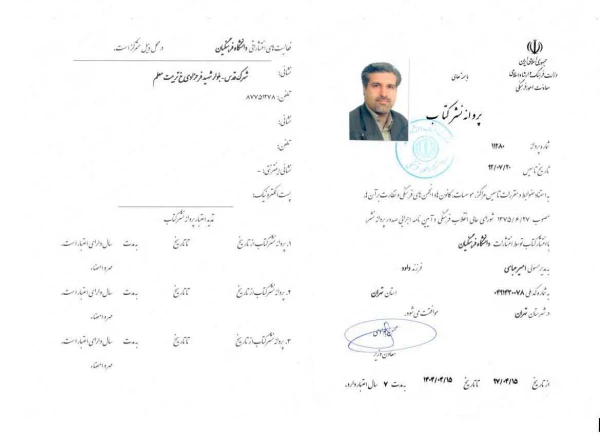 جمهوری اسلامی ایران
وزارت فرهنگ و ارشاد اسلامی
معاونت امور فرهنگی
باسمه تعالی
پروانه نشر کتاب
شماره پروانه ۱۱۳۸۰
تاریخ تاسیس ۹۲/۰۷/۲۰
به استناد ضوابط و مقررات تاسیس مراکز، موسسات، کانون‌ها و انجمن‌های فرهنگی و نظارت بر آن‌ها
مصوب ۱۳۷۵/۶/۲۷ شورای عالی انقلاب فرهنگی و آیین نامه اجرایی صدور پروانه نشر؛
با انتشار کتاب توسط انتشارات دانشگاه فرهنگیان
به مدیر مسئولی امیر فرزند داود
به شماره کد ملی استان تهران
در شهرستان تهران موافقت می‌شود.
معاون وزیر
از تاریخ ۹۷/۰۴/۱۵ تا تاریخ ۱۴۰۴/۰۴/۱۵ به مدت ۷ سال اعتبار دارد.
فعالیت‌های انتشاراتی دانشگاه فرهنگیان در محل ذیل متمرکز است.
نشانی: شهرک قدس - بلوار شهید فرحزادی خ تربیت معلم
تلفن: ۸۷۷۵۱۲۷۸
نشانی:
تلفن:
نشانی اینترنتی: -
پست الکترونیک:
تمدید اعتبار پروانه نشر کتاب
۱. پروانه نشر کتاب از تاریخ تا تاریخ به مدت سال دارای اعتبار است.
مهر و امضاء
۲. پروانه نشر کتاب از تاریخ تا تاریخ به مدت سال دارای اعتبار است.
مهر و امضاء
۳. پروانه نشر کتاب از تاریخ تا تاریخ به مدت سال دارای اعتبار است.
مهر و امضاء